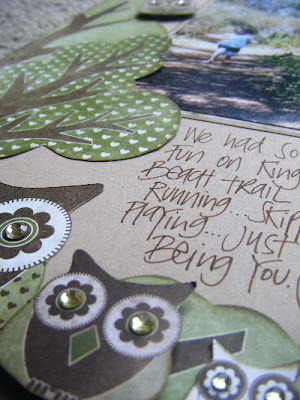 We had so
fun on King
Beach Trail
Running... Skip
Playing... Just
Being You.